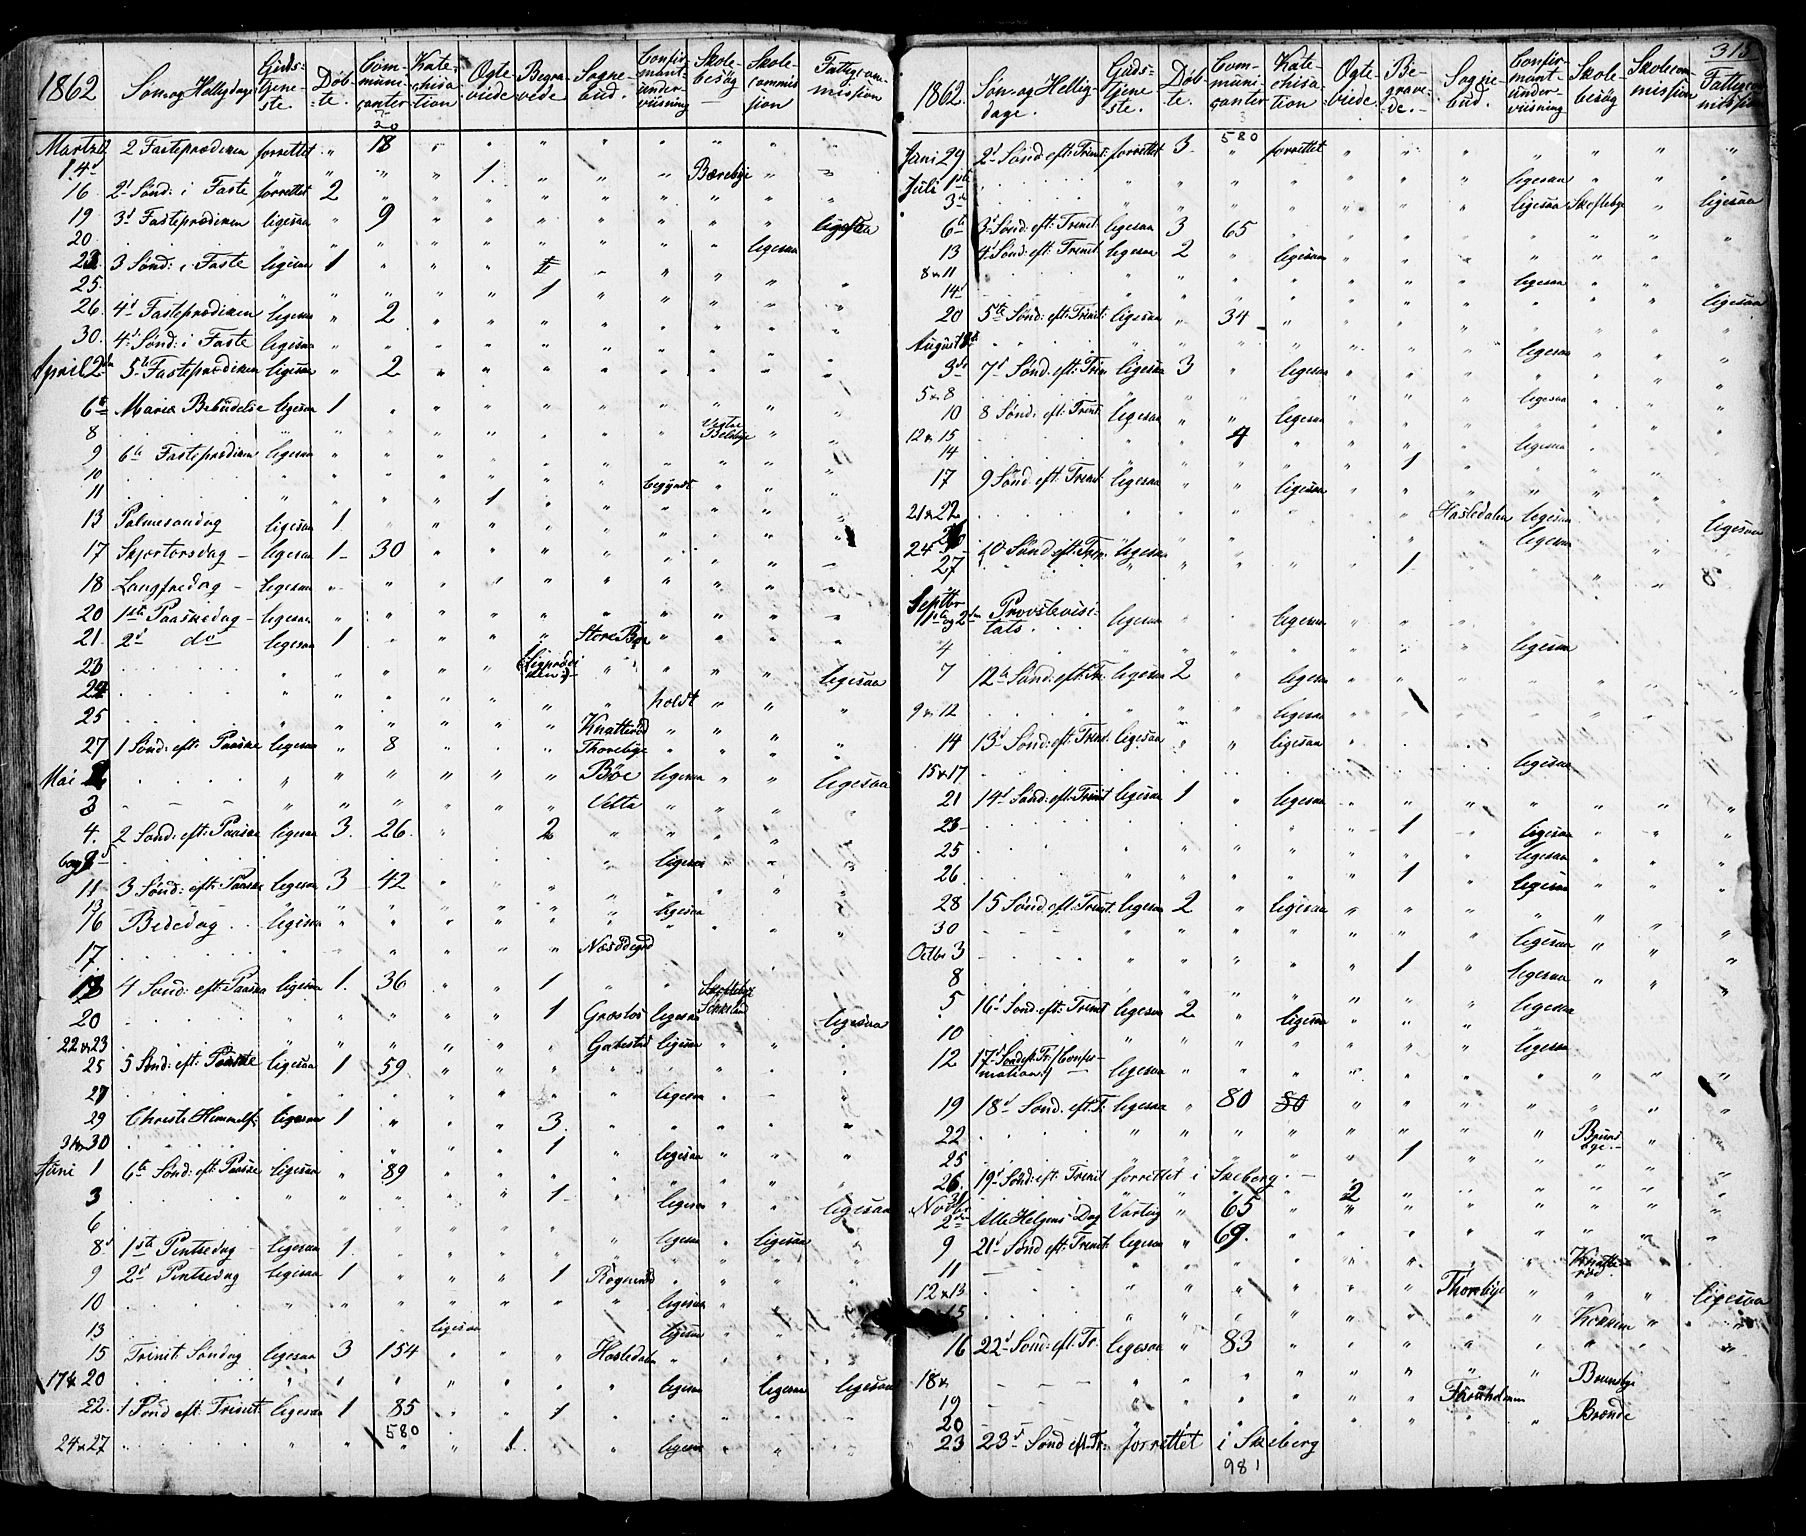 1862 Søn og Helligdage Guds-tjene-ste. Døb-te. Com-muni-canter Kate-chisa-tion Ægte-viede Begra-vede Sogne-bud. Confir-mant-under-viisning Skole-besøg Skole-commis-sion Fattigcom-mission
20
2 Fasteprædiken forrettet " 18
14 1. Bærebye
16 2d Sønd: i Faste forrettet 2
19 3d Fasteprædiken ligesaa " 9
20. ligesaa
3 Sønd: i Faste ligesaa 1
25. 1
26. 4d Fasteprædiken ligesaa " 2
30. 4d Sønd: i Faste ligesaa
April 2 5t Fasteprædiken ligesaa " 2
6t Mariæ Bebudelse ligesaa 1
8
9 6te Fasteprædiken ligesaa
10 begyndt
11 1
13 Palmesøndag ligesaa 1.
17 Skjertorsdag - ligesaa 1 - 30
18 Langfredag - ligesaa
20 1ste Paaskedag - ligesaa
21. 2d do ligesaa 1
23 ligesaa
24 holdt
25 Knatterød
27 1 Sønd: eft: Paaske ligesaa " 8 Thorebye
Mai Bøe ligesaa ligesaa
3 Vetta
4. 2 Sønd: eft: Paaske ligesaa 3. 26. 2
6 og 8 ligesaa
11 3 Sønd: eft: Paaske ligesaa 3 42
13 ligesaa
16 Bededag ligesaa
17
18 4 Sønd: eft: Paaske ligesaa 1. 36 1
20 1 ligesaa ligesaa
22 & 23 ligesaa
25 5 Sønd: eft: Paaske ligesaa 1 59
27 ligesaa
29 Christi Himmelf: ligesaa 1 3.
30 1 ligesaa
Juni 1 6te Sønd: eft: Paaske ligesaa " 89
3 1 ligesaa ligesaa
6
8d 1ste Pintsedag - ligesaa 1. ligesaa ligesaa
9 2d Pintsedag ligesaa 1 1
10 ligesaa
13 ligesaa ligesaa
15 Trinit: Søndag ligesaa 3 154 Hasledalen
17 & 20 ligesaa ligesaa ligesaa
22. 1 Sønd eft: Trinit: ligesaa 1 85 1
580
24 & 27 1. ligesaa
315
1862. Søn og Hellig-dage. Guds-tjene-ste. Døb-te. Com-muni-canter Kate-chisa-tion Ægte-viede. Be-gravede. Sogne-bud. Confir-mant-under-viisning Skole-besøg Skolecom-mission Fattigcom-mission
3
580
Juni 29 2d Sønd: eft: Trinit: forrettet 3. forrettet
Juli 1ste ligesaa
3d ligesaa Skoflebye ligesaa
6te 3d Sønd: eft: Trinit ligesaa 3 65
13 4d Sønd: eft: Trinit ligesaa 2 ligesaa
8 & 11 ligesaa
14d ligesaa
20 5te Sønd: eft: Trinit: ligesaa " 34
August ligesaa
3d 7d Sønd: eft: Trin ligesaa 3 ligesaa
5 & 8 ligesaa
10 8 Sønd: eft: Trinit. ligesaa ligesaa
12 & 15 4 ligesaa
14 1
17 9 Sønd: eft: Trinit ligesaa ligesaa
21 & 22 Hasledalen ligesaa ligesaa
ligesaa
24 10 Sønd: eft: Trin: ligesaa
27 1
Septbr 1ste og 2den Provstevisi-tats. ligesaa ligesaa
4 ligesaa
7 12te Sønd: eft: Tr. ligesaa 2 ligesaa
9 & 12 ligesaa
14 13d Sønd: eft: Trinit. ligesaa ligesaa
15 & 17 ligesaa
21 14d Sønd: eft: Trinit ligesaa 1 ligesaa
23 1 ligesaa
25 ligesaa
26. 1 ligesaa
28 15 Sønd: eft: Trinit. ligesaa 2 ligesaa
30 ligesaa
Octbr 3 1
8 ligesaa
5 16d Sønd: eft: Trinit ligesaa 2 ligesaa ligesaa
10 ligesaa
12 17d Sønd eft: Tr. (Confir-mation.) ligesaa
19 18d Sønd. eft: T: ligesaa " 80 80
22
25 1
26. 19d Sønd: eft: Trinit forrettet i Skeberg. -
31 2
Novbr 2den Alle Helgens-Dag Varteig " 65
9 21d Sønd eft: Trinit: ligesaa " 69.
11
12 & 13 Thorebye ligesaa
15
16 22d Sønd: eft: Tr. ligesaa " 83
18 & Brunsbye
19
20 Brende
23 23d Sønd eft: Tr: forrettet i Skeberg
981